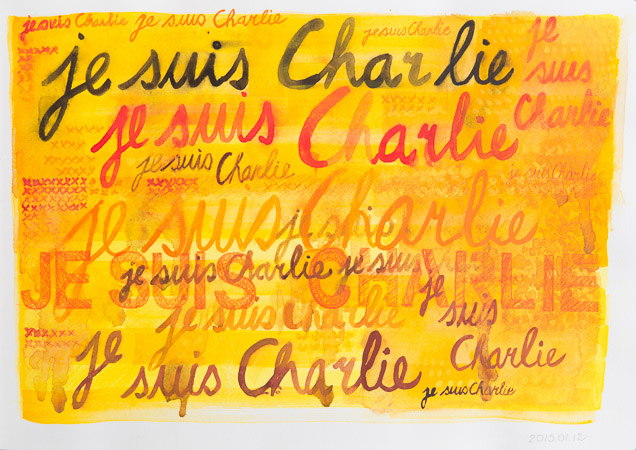 je suis Charlie je suis Charlie
je suis Charlie
je
suis
Charlie
je suis Charlie
je suis Charlie
je suis Charlie
je suis Charlie
je suis Charlie
je suis
JE SUIS CHARLIE
je suis Charlie je suis
je suis Charlie
je
suis
Charlie
je
suis Charlie
je suis Charlie
2015.01.12